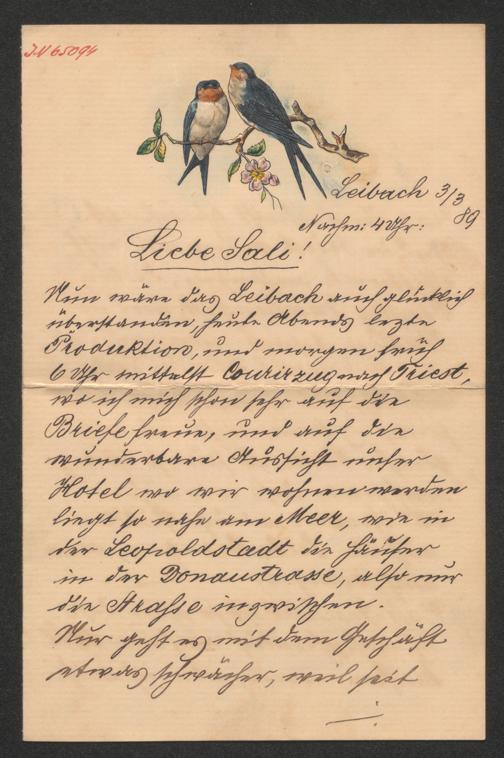 I.N 65094
Leibach 3/3
89
Nachm: 4 Uhr:
Liebe Sali!
Nun wäre das Leibach auch glücklich
überstanden, heute Abends lezte
Produktion, und morgen früh
6 Uhr mittelst Courirzug nach Triest,
wo ich mich schon sehr auf die
Briefe freue, und auf die
wunderbare Aussicht unser
Hotel wo wir wohnen werden
liegt so nahe am Meer, wie in
der Leopoldstadt die Häuser
in der Donaustrasse, also nur
die Strasse inzwischen.
Nur geht es mit dem Geschäft
etwas schwächer, weil seit